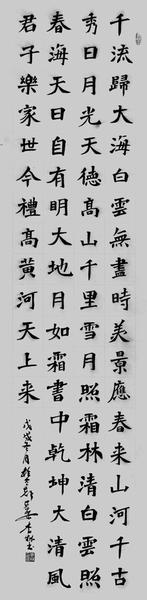 千流歸大海白雲無盡時美景應春来山河千古
秀日月光天德高山千里雪月照霜林清白雲照
春海天日自有明大地月如霜書中乾坤大清風
君子樂家世今禮高黃河天上来
戊戌